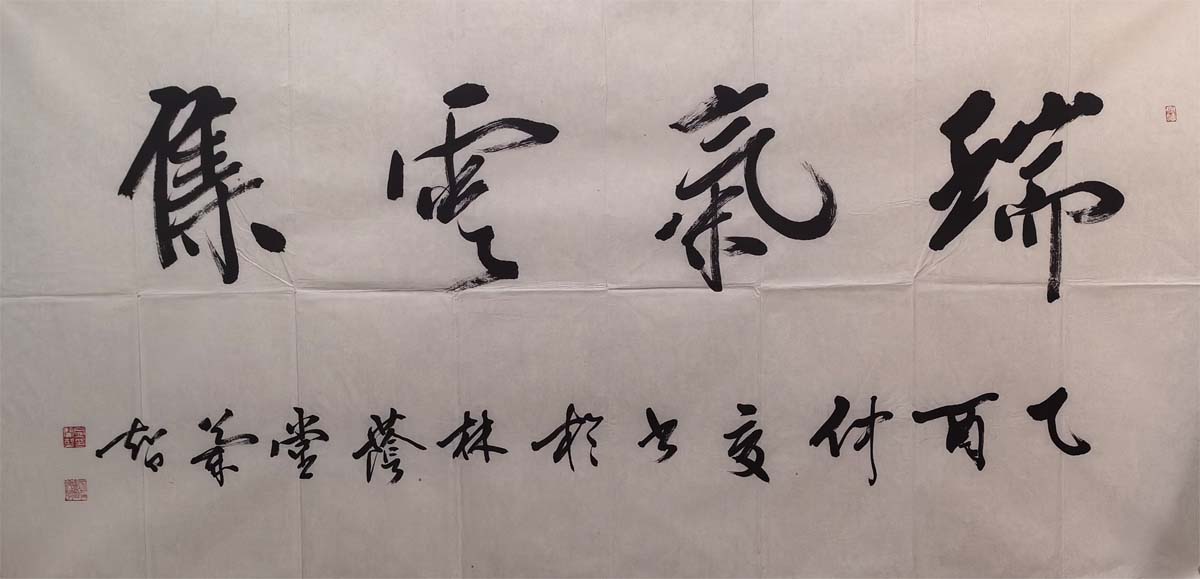 瑞氣雲集
乙酉仲夏書於林蔭堂 智